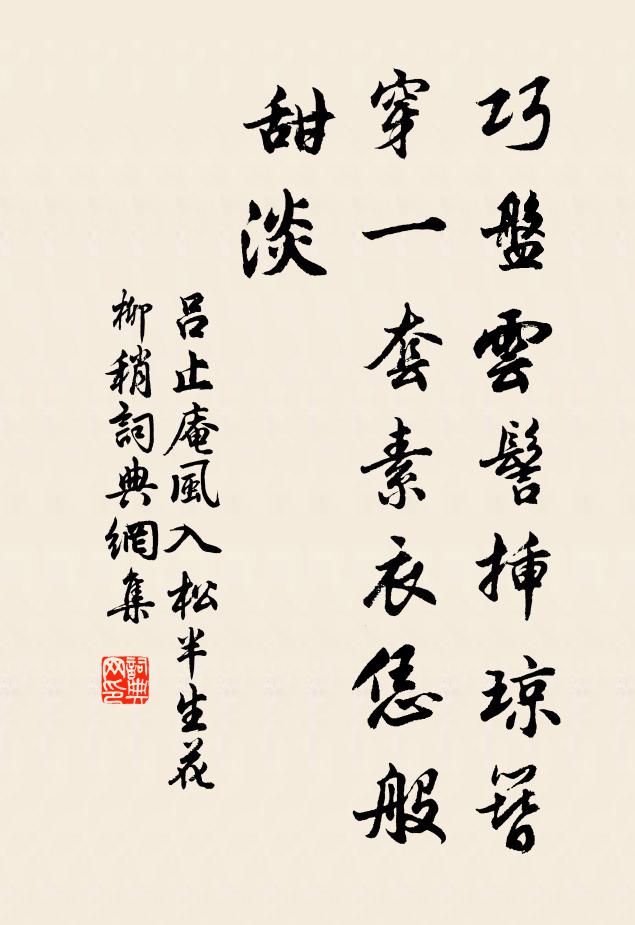 巧盤雲髻挿琼簪
穿一套素衣恁般
甜淡
呂止庵風入松半生花
柳稍詞典網集
詞典
网印